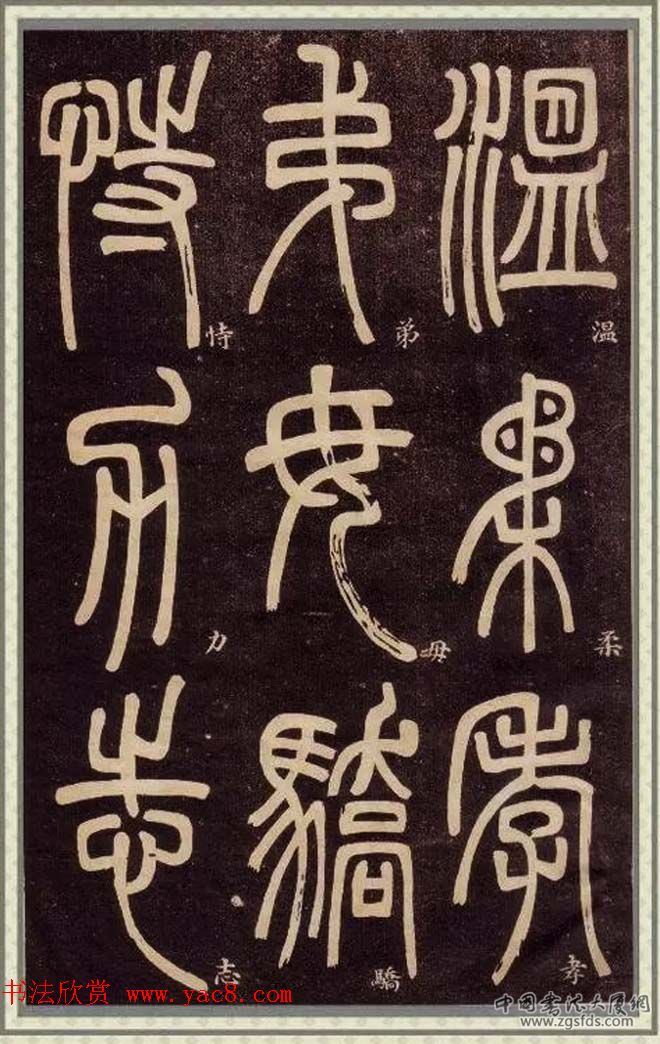 温柔孝
弟毋驕
恃力志
温
柔
孝
弟
毋
驕
恃
力
志
书法欣赏 www.yac8.com
中国书法大厦网
www.zgsfds.com